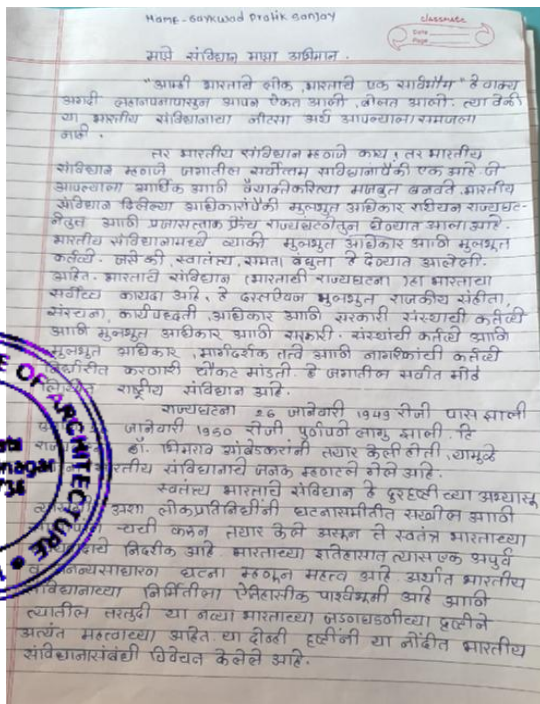 Name - Gaykwad Pratik Sanjay
classmate
Date
Page
माझे संविधान माझा अभिमान.
"आम्ही भारताचे लोक, भारताचे एक सार्वभौम" हे वाक्य
अगदी लहानपनापासुन आपन ऐकत आलो, बोलत आलो. त्या वेळी
या भारतीय संविधानाचा नीटसा अर्थ आपल्याला समजला
नाही.
तर भारतीय संविधान म्हणजे काय? तर भारतीय
संविधान म्हणजे जगातील सर्वोत्तम संविधानापैकी एक आहे. जे
आपल्याला आर्थिक आणि वैयक्तीकरित्या मजबुत बनवते. भारतीय
संविधान दिलेल्या अधिकारांपैकी मुलभुत अधिकार रशियन राज्यघट-
नेतुन आणि प्रजासत्ताक फ्रेंच राज्यघटनेतुन घेण्यात आला आहे.
भारतीय संविधानामध्ये व्यक्ती मुलभुत अधिकार आणि मुलभुत
कर्तव्ये. जसे की, स्वातंत्य, समता बंधुता हे देण्यात आलेली.
आहेत. भारताचे संविधान (भारताची राज्यघटना) हा भारताचा
सर्वोच्च कायदा आहे. हे दस्तऐवज मुलभुत राजकीय संहीता,
संरचना, कार्यपध्दती, अधिकार आणि सरकारी संस्थांची कर्तव्ये
आणि मुलभुत अधिकार आणि सरकारी. संस्थांची कर्तव्ये आणि
मुलभुत अधिकार, मार्गदर्शक तत्वे आणि नागरिकांची कर्तव्ये
निर्धारीत करणारी चौकट मांडती. हे जगातील सर्वात मोठे
लिखित राष्ट्रीय संविधान आहे.
राज्यघटना 26 जानेवारी 1949 रोजी पास झाली
जानेवारी 1950 रोजी पुर्णपणे लागु झाली. हि
डॉ. भिमराव आंबेडकरांनी तयार केली होती. यामुळे
भारतीय संविधानाचे जनक म्हणटले गेले आहे.
स्वतंत्र भारताचे संविधान हे दुरदृष्टीच्या अभ्यासु
अशा लोकप्रतिनिधींनी घटनासमितीत सखोल आणि
चर्चा करून तयार केले असून ते स्वतंत्र भारताच्या
निदर्शक आहे. भारताच्या इतिहासात त्यास एक अपुर्व
व अनन्यसाधारण घटना म्हणून महत्व आहे. अर्थात भारतीय
संविधानाच्या निर्मितीला ऐतिहासीक पार्श्वभुमी आहे आणि
त्यातील तरतुदी या नव्या भारताच्या जडणघडणीच्या दृष्टीने
अत्यंत महत्वाच्या आहेत. या दोन्ही दृष्टींनी या नोंदीत भारतीय
संविधानासंबंधी विवेचन केलेले आहे.
OF ARCHITECTURE
nagar